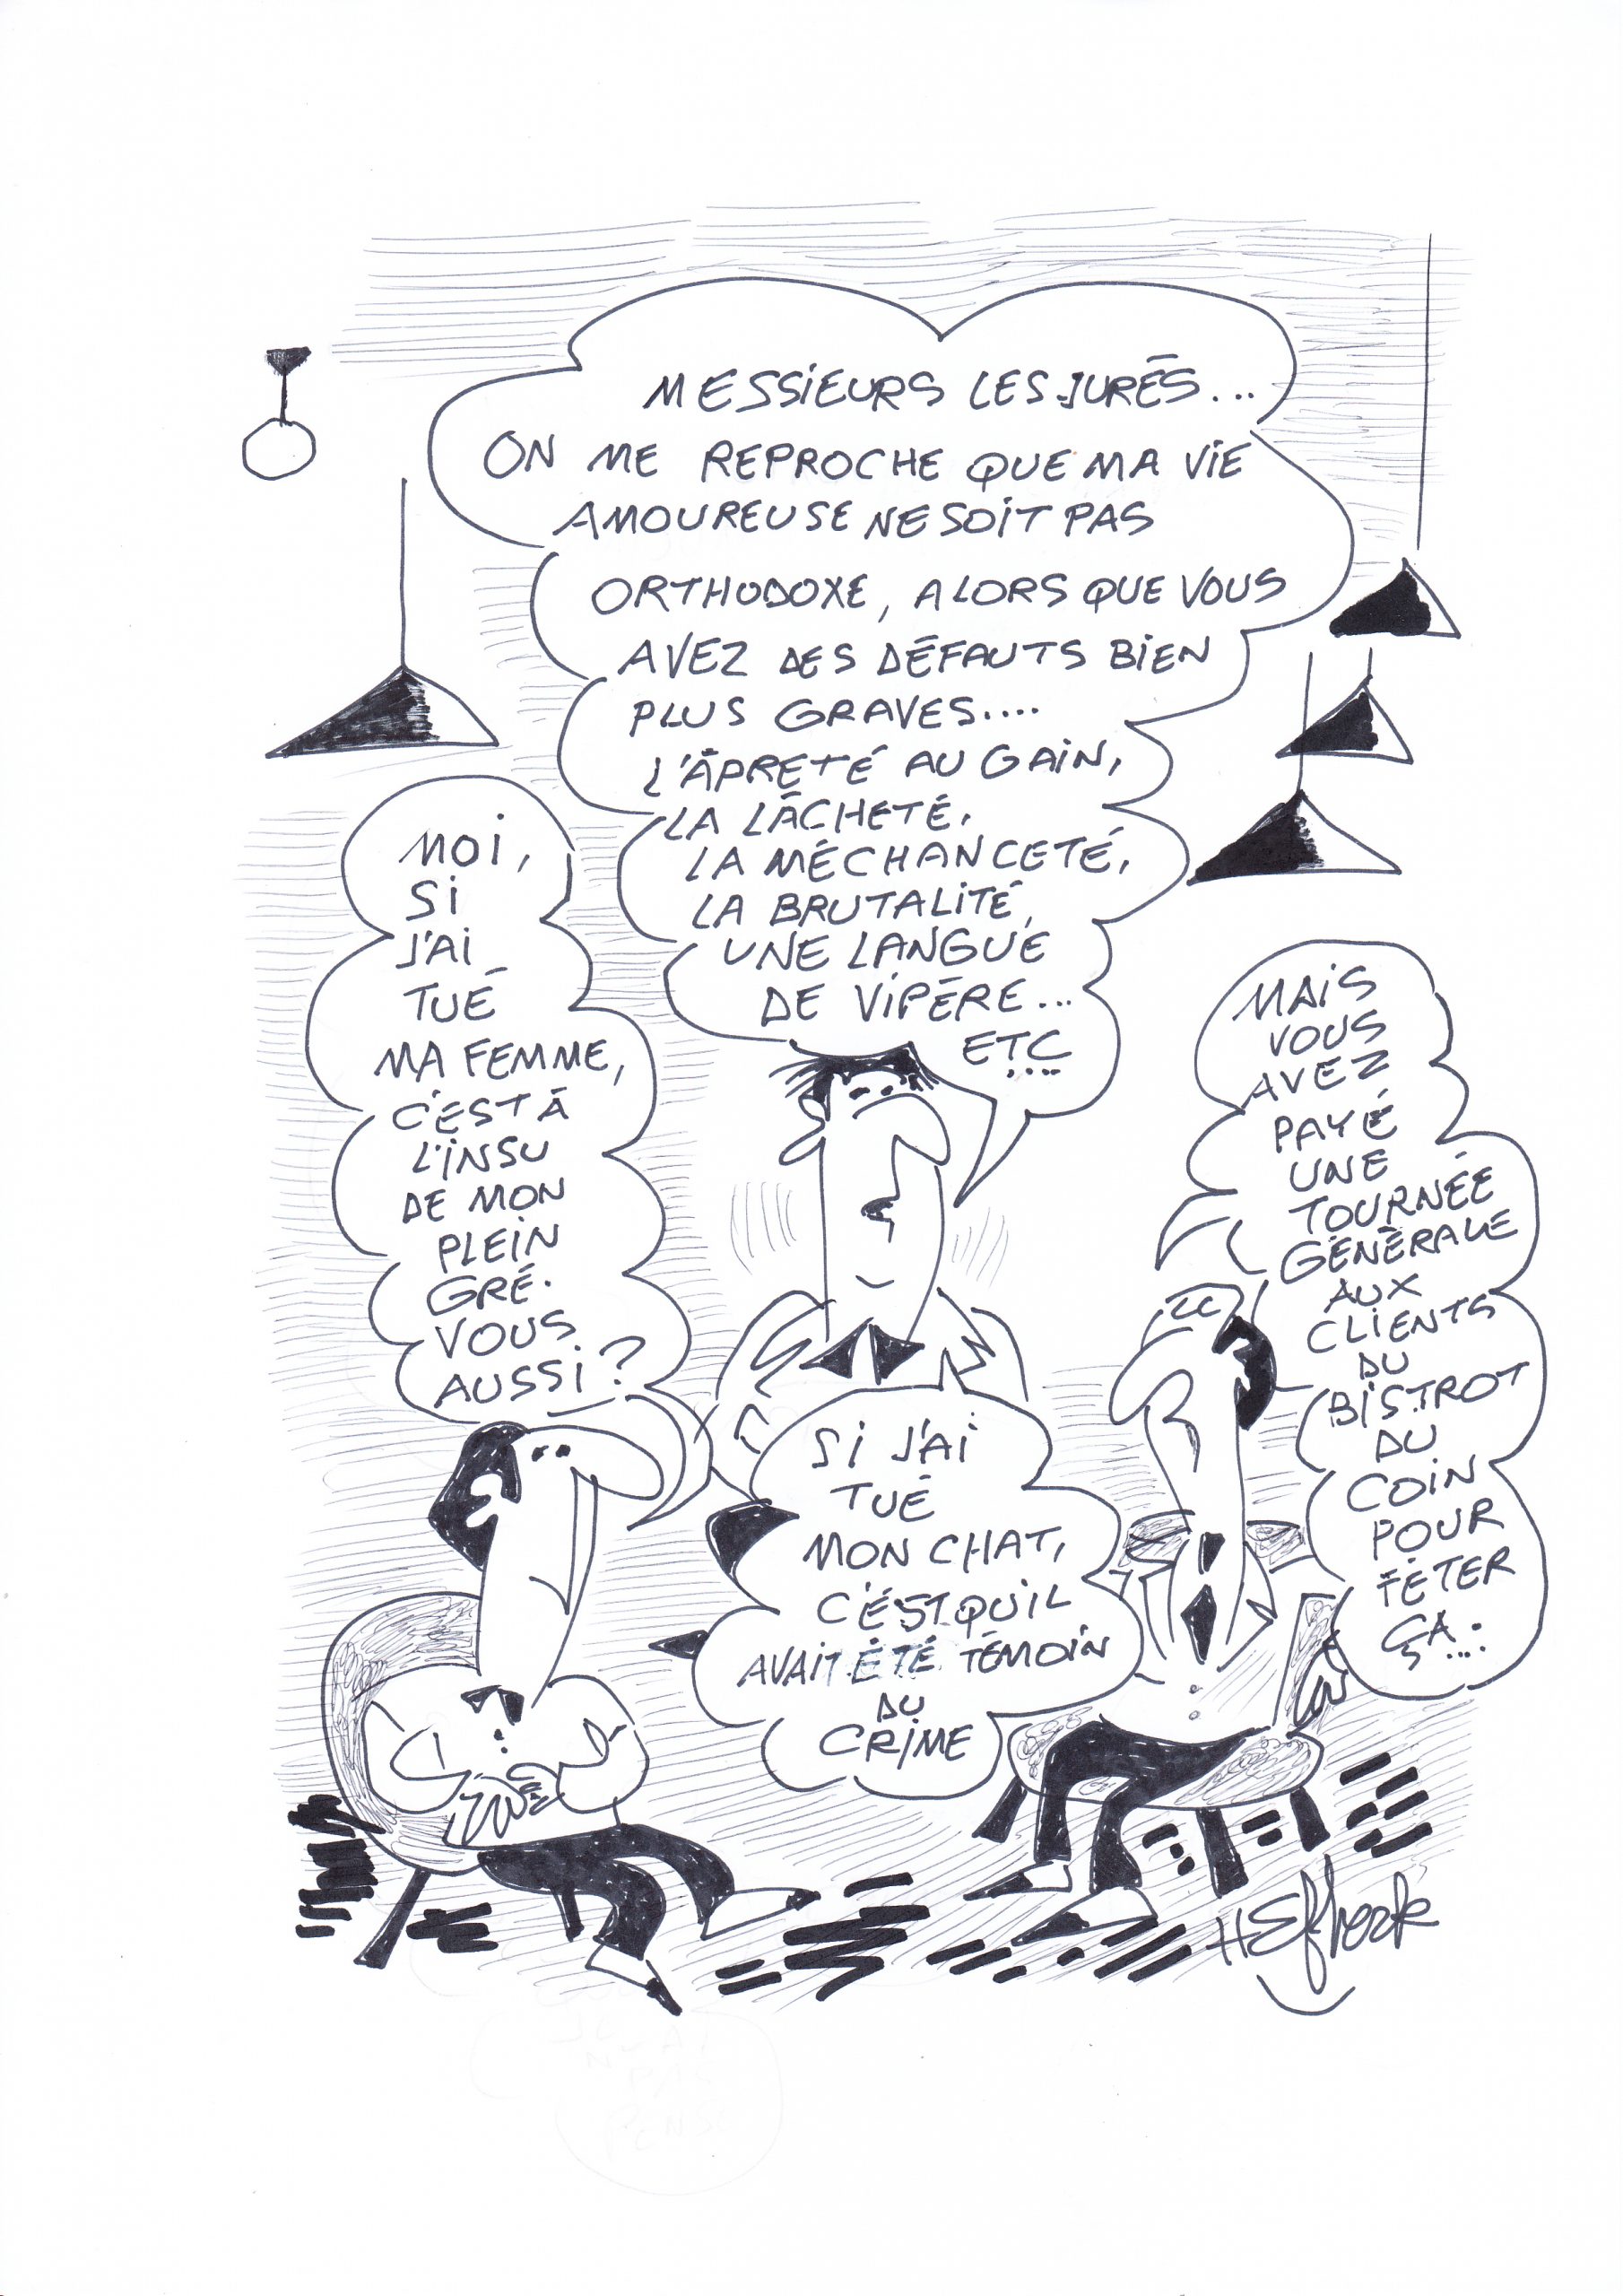 MESSIEURS LES JURÉS...
ON ME REPROCHE QUE MA VIE
AMOUREUSE NE SOIT PAS
ORTHODOXE, ALORS QUE VOUS
AVEZ DES DÉFAUTS BIEN
PLUS GRAVES....
L'ÂPRETÉ AU GAIN,
LA LÂCHETÉ,
LA MÉCHANCETÉ,
LA BRUTALITÉ,
UNE LANGUE
DE VIPÈRE...
ETC...
MOI,
SI
J'AI
TUÉ
MA FEMME,
C'EST À
L'INSU
DE MON
PLEIN
GRÉ.
VOUS
AUSSI?
SI J'AI
TUÉ
MON CHAT,
C'EST QU'IL
AVAIT ÉTÉ TÉMOIN
DU
CRIME
MAIS
VOUS
AVEZ
PAYÉ
UNE
TOURNÉE
GÉNÉRALE
AUX
CLIENTS
DU
BISTROT
DU
COIN
POUR
FÊTER
ÇA...